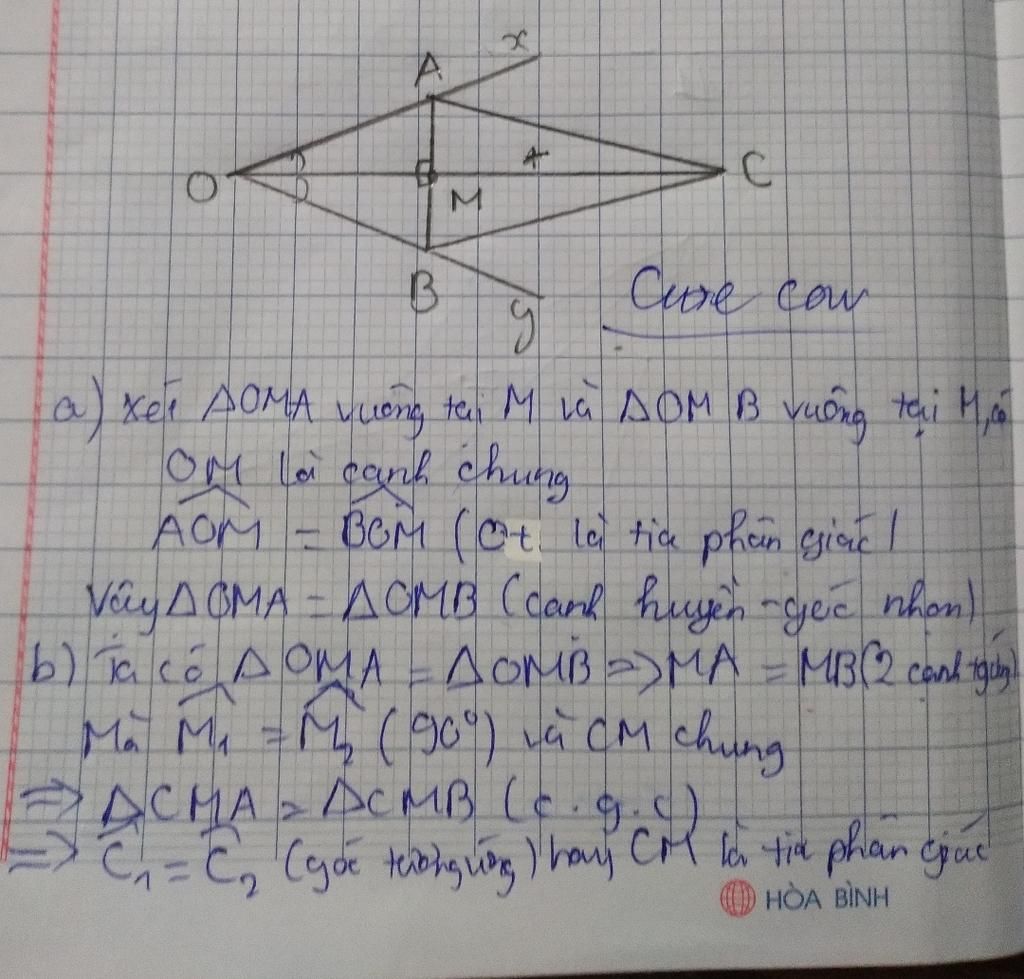 x
A
O
M
t
C
B
y
a) Xét ΔOMA vuông tại M và ΔOMB vuông tại M, có
OM là cạnh chung
AOM = BOM (Ot là tia phân giác)
Vậy ΔOMA = ΔOMB (cạnh huyền - góc nhọn)
b) Ta có ΔOMA = ΔOMB => MA = MB (2 cạnh tg ứng)
Mà M1 = M2 (90°) và CM chung
=> ΔCMA = ΔCMB (c.g.c)
=> C1 = C2 (góc tương ứng) hay CM là tia phân giác
HÒA BÌNH